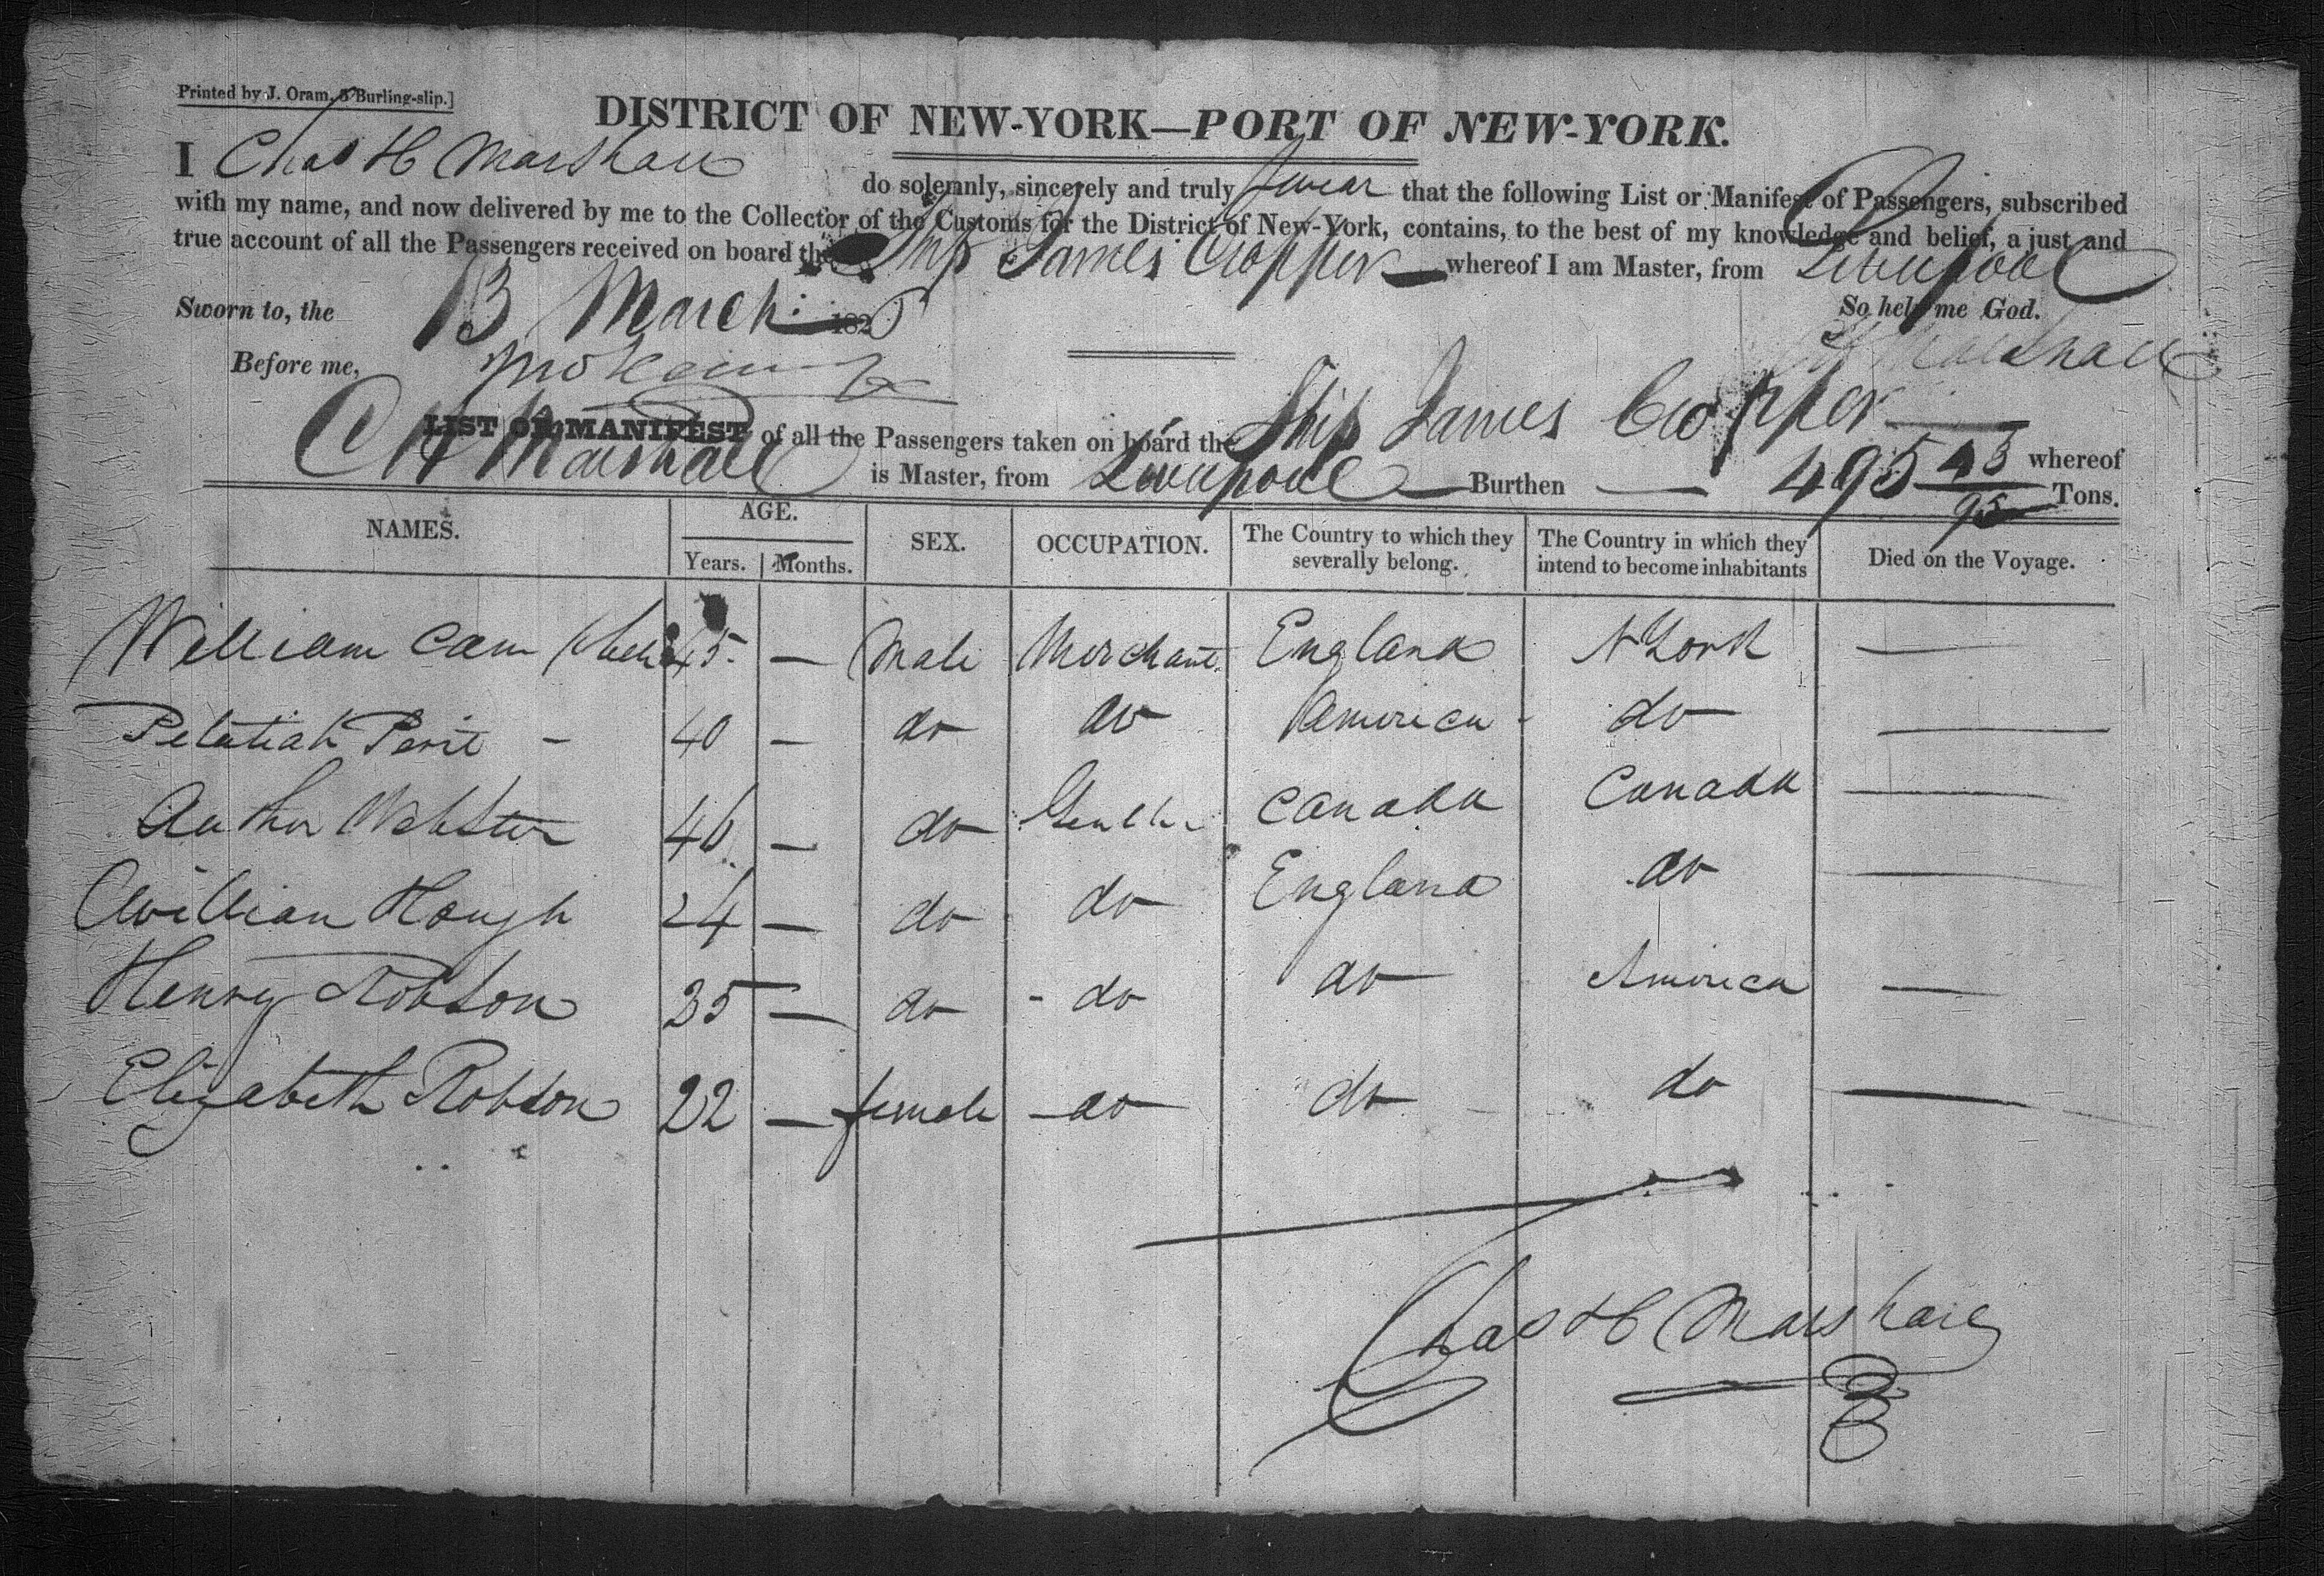 Printed by J. Oram, 5 Burling-slip.]
DISTRICT OF NEW-YORK—PORT OF NEW-YORK.
I Chas H Marshall do solemnly, sincerely and truly swear that the following List or Manifest of Passengers, subscribed
with my name, and now delivered by me to the Collector of the Customs for the District of New-York, contains, to the best of my knowledge and belief, a just and
true account of all the Passengers received on board the Ship James Cropper whereof I am Master, from Liverpool
Sworn to, the 13 March 182 So help me God.
Before me, Marshall
LIST OR MANIFEST of all the Passengers taken on board the Ship James Cropper whereof
C H Marshall is Master, from Liverpool Burthen 495 43/95 Tons.
NAMES. AGE. SEX. OCCUPATION. The Country to which they severally belong. The Country in which they intend to become inhabitants Died on the Voyage.
Years. Months.
William Cam 45 — Male Merchant England N York —
Pelatiah Perit - 40 — do do America do —
Webster 46 — do Canada Canada —
William Hough 24 — do do England do —
Henry Robson 35 — do do do America —
Elizabeth Robson 22 — female do do do —
Chas H Marshall